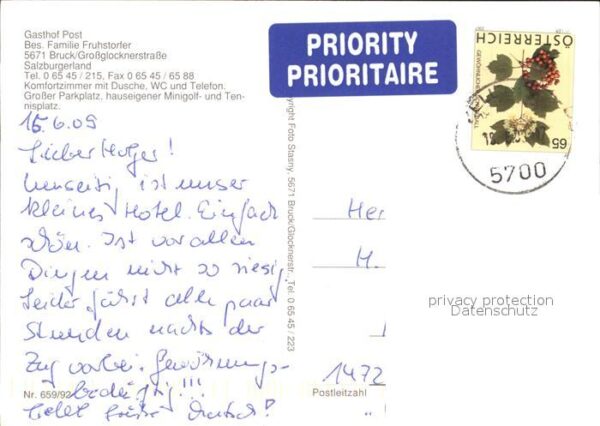 Gasthof Post
Bes. Familie Fruhstorfer
5671 Bruck/Großglocknerstraße
Salzburgerland
Tel. 0 65 45 / 215, Fax 0 65 45 / 65 88
Komfortzimmer mit Dusche, WC und Telefon.
Großer Parkplatz, hauseigener Minigolf- und Ten-
nisplatz.
PRIORITY
PRIORITAIRE
ÖSTERREICH
65
5700
15.6.09
Lieber Holger!
Umseitig ist unser
kleines Hotel. Einfach
schön. Ist vor allen
Dingen nicht so riesig
Leider fährt alle paar
Stunden nachts der
Zug vorbei. Gewöhnungs-
bedürftig!!!
Copyright Foto Stasny, 5671 Bruck/Glocknerstr., Tel. 0 65 45 / 223
Her
H.
1472
Postleitzahl
privacy protection
Datenschutz
Nr. 659/92